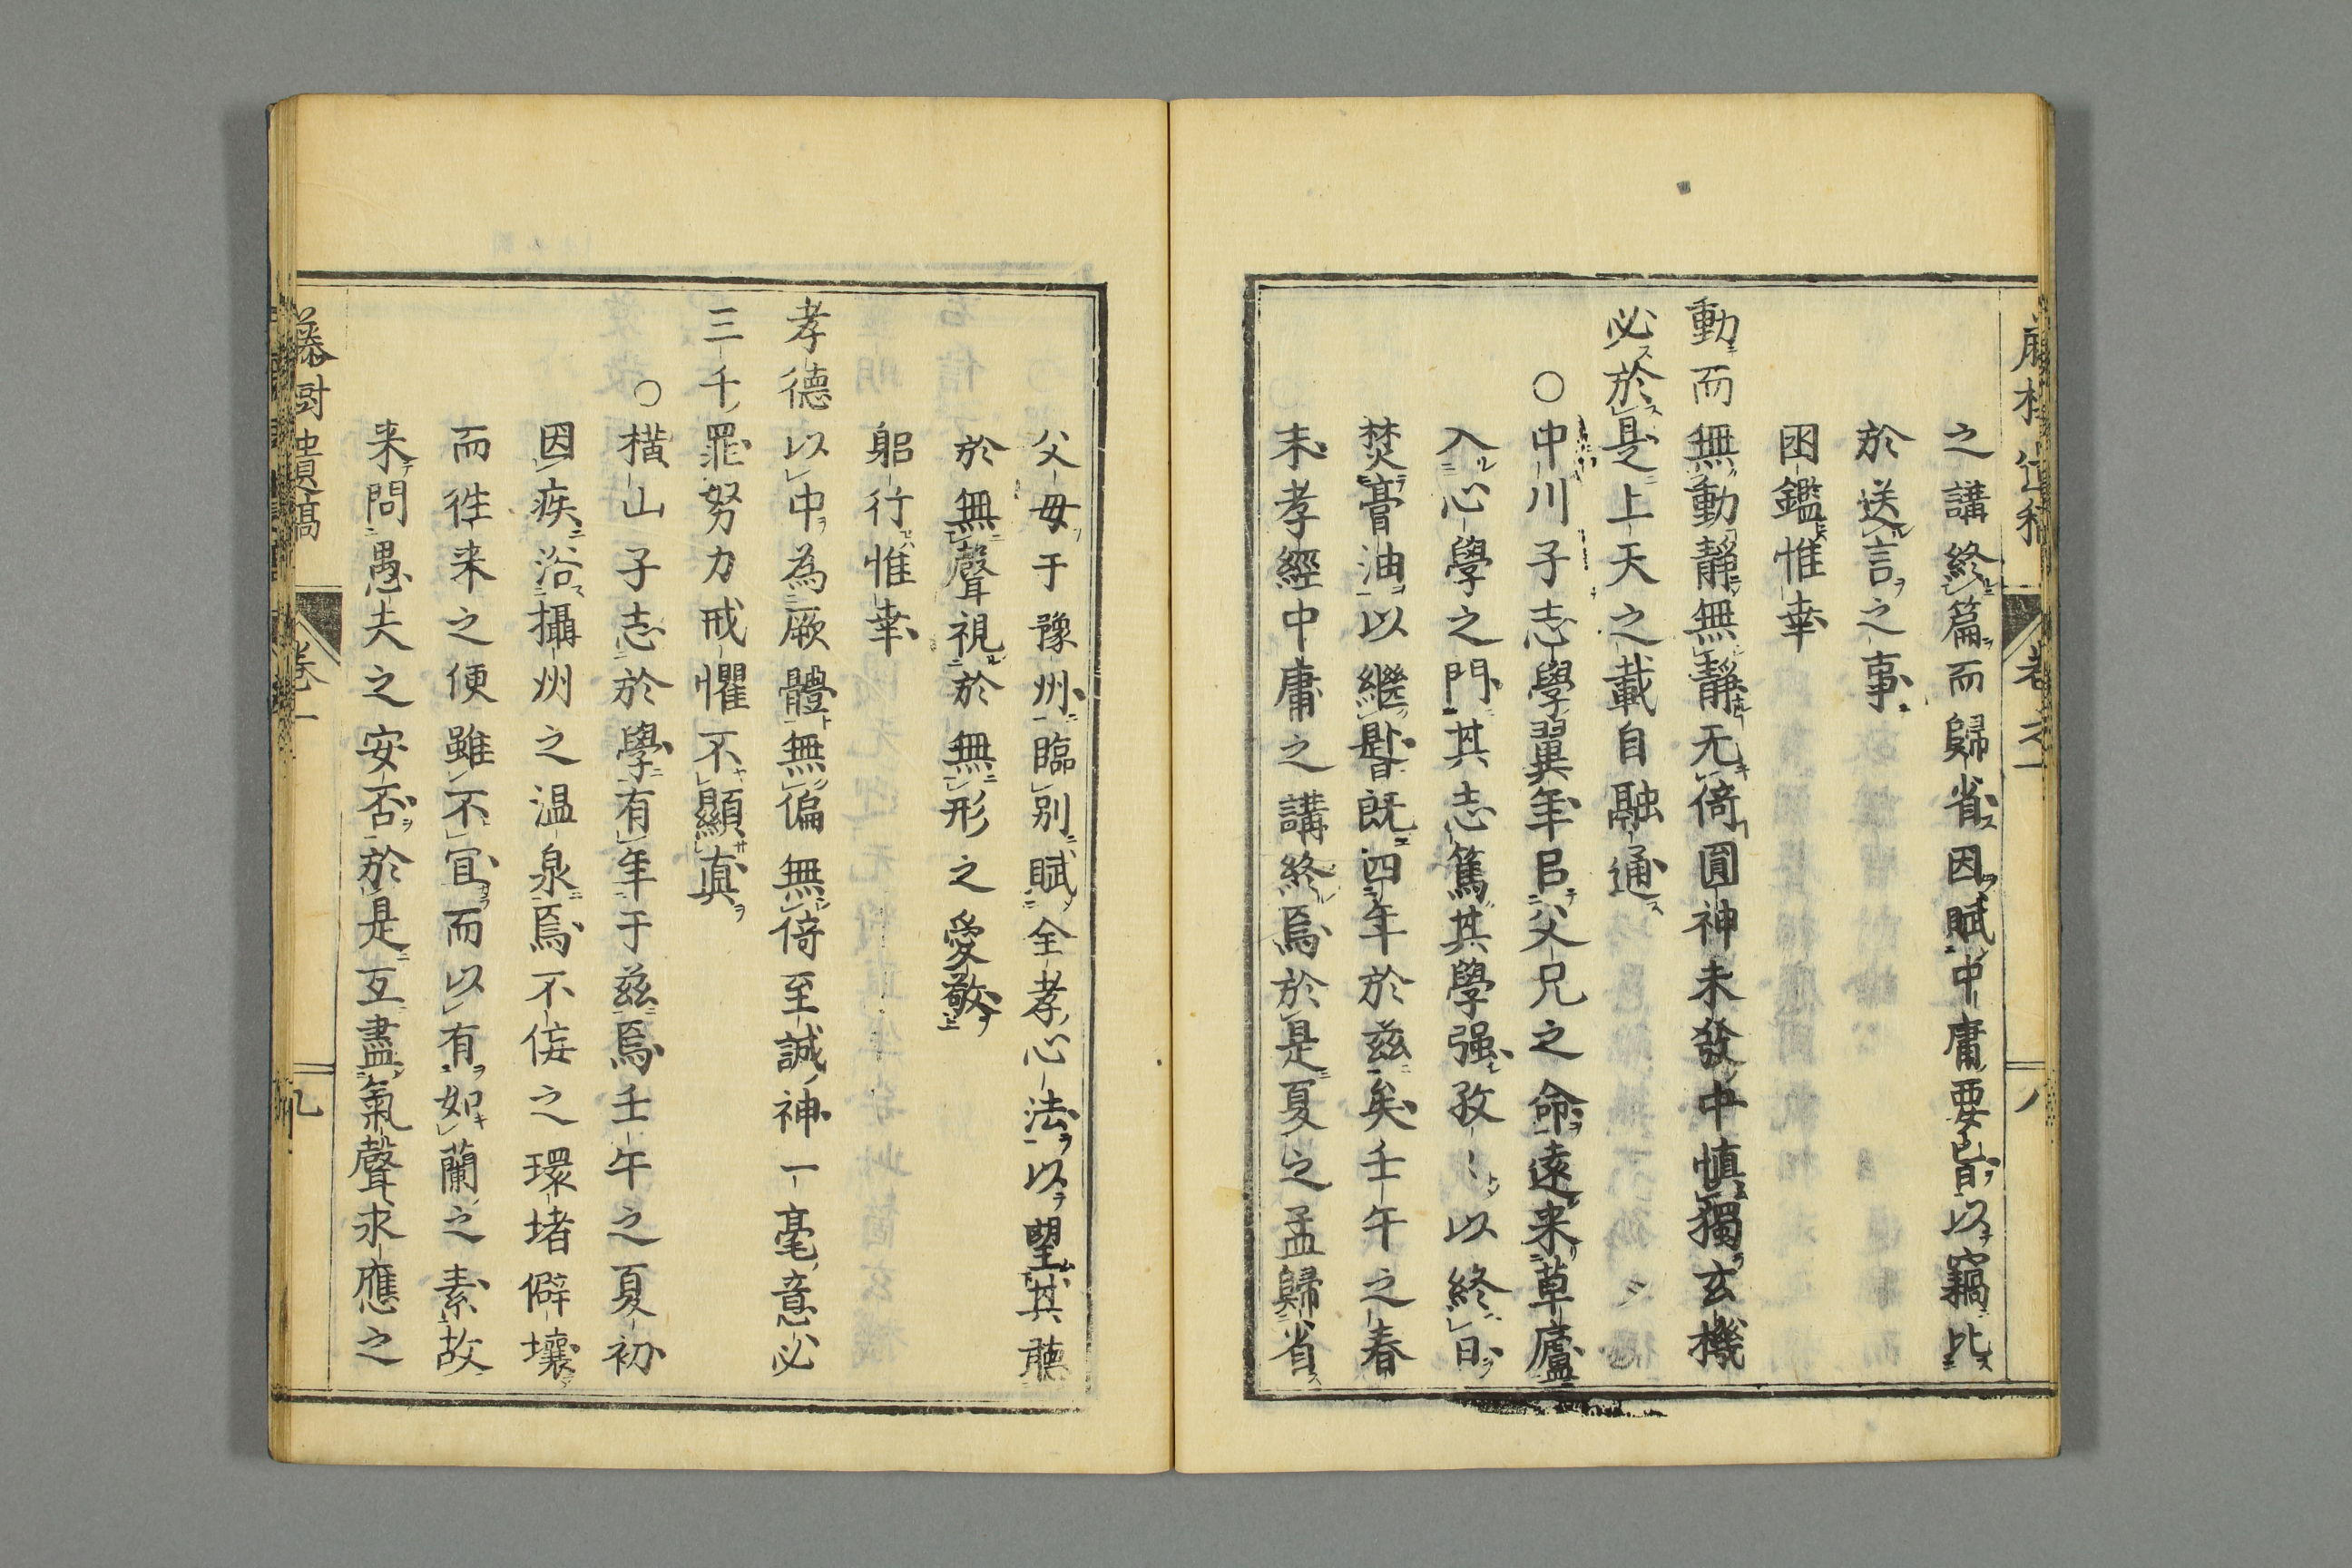 藤樹遺稿 卷之一 八
之講終篇而歸省因賦中庸要旨以竊比
於送言之事
囦鑑惟幸
動而無動靜無靜无倚圓神未發中愼獨玄機
必於是上天之載自融通
○中川子志學翼年㠯父兄之命遠来草廬
入心學之門其志篤其學强孜〻以終日
焚膏油以繼晷既四年於茲矣壬午之春
末孝經中庸之講終焉於是夏之孟歸省
父母于豫州臨別賦全孝心法以望其聽
於無聲視於無形之愛敬
躳行惟幸
孝德以中為厥體無偏無倚至誠神一毫意必
三千罪努力戒懼不顯真
○橫山子志於學有年于茲焉壬午之夏初
因疾浴攝州之温泉焉不侫之環堵僻壤
而徃来之便雖不宜而以有如蘭之素故
来問愚夫之安否於是互盡氣聲求應之
藤樹遺稿 卷一 九